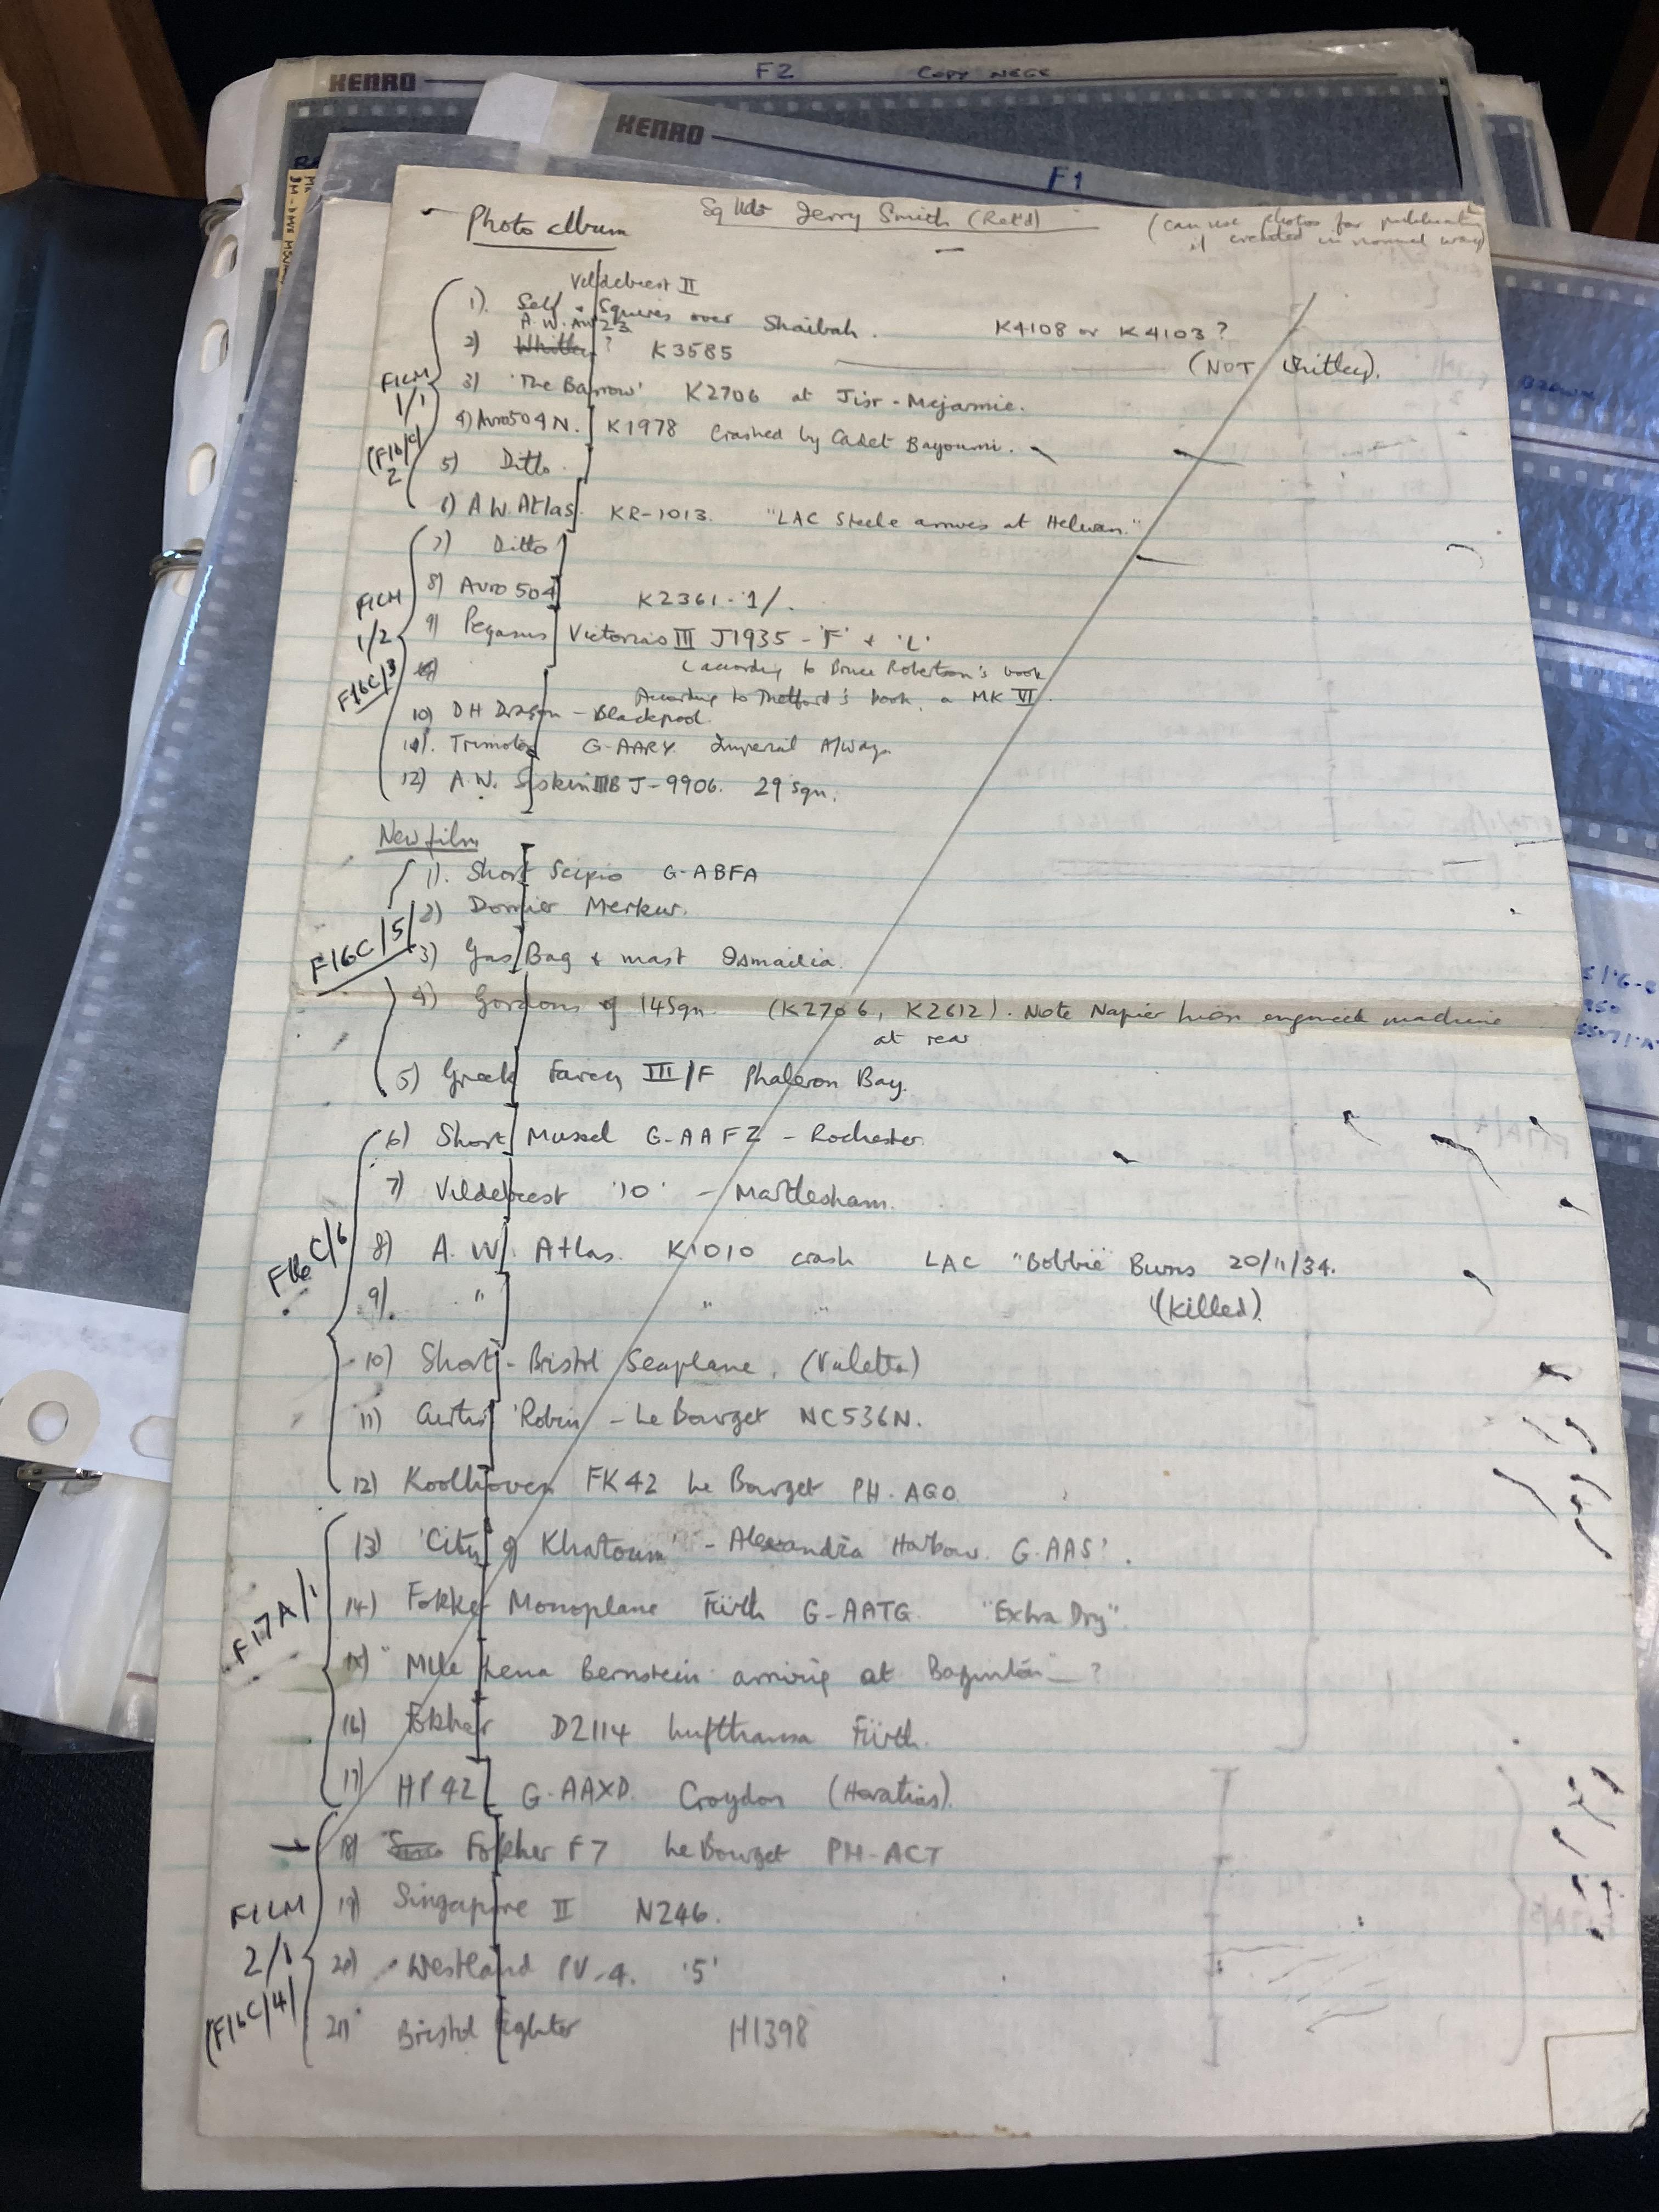 KENRO F2 COPY NEGS
KENRO F1
Photo album Sq Ldr Jerry Smith (Ret'd) (can use photos for publication
if credited in normal way)
Vildebeest II
1). Self + Squires over Shaibah. K4108 or K4103?
A.W. AW 23
2) Whitley? K3585 (NOT Whitley).
FILM 1/1 (F16/C/2
3) 'The Barrow' K2706 at Jisr-Mejamie.
4) Avro 504 N. K1978 Crashed by Cadet Bayoumi.
5) Ditto.
6) A W. Atlas. KR-1013. "LAC Steele arrives at Helwan."
7) Ditto
FILM 1/2 F16C/3
8) Avro 504 K2361-'1/.
9) Pegasus Victorias III J1935-'F' + 'L'
(according to Bruce Robertson's book
According to Thetford's book, a MK VI.
10) DH Dragon - Blackpool.
11). Trimotor G-AARY. Imperial A/Ways.
12) A.W. Siskin IIIB J-9906. 29 Sqn.
New film
1). Short Scipio G-ABFA
2) Dornier Merkur.
F16C/5
3) Gas Bag & mast Ismailia.
4) Gordons of 14 Sqn. (K2706, K2612). Note Napier Lion engined machine
at rear
5) Greek Fairey III/F Phaleron Bay.
6) Short Mussel G-AAFZ - Rochester.
7) Vildebeest '10' - Martlesham.
F16C/6
8) A. W. Atlas. K1010 crash LAC "Bobbie" Burns 20/11/34.
9). " " " (killed).
10) Short-Bristol Seaplane. (Valetta)
11) Curtis 'Robin - Le Bourget NC536N.
12) Koolhoven FK42 Le Bourget PH.AGO.
13) 'City of Khatoum' - Alexandria Harbour. G.AAS'.
F17A/1
14) Fokker Monoplane Fürth G-AATG. "Extra Dry".
15) Mlle Lena Bernstein arriving at ?
16) Fokker D2114 Lufthansa Fürth.
17) HP42 G-AAXD. Croydon (Horatius).
18) Fokker F7 Le Bourget PH-ACT
FILM 2/1 (F16C/4)
19) Singapore II N246.
20) Westland PV-4. '5'
21) Bristol Fighter H1398